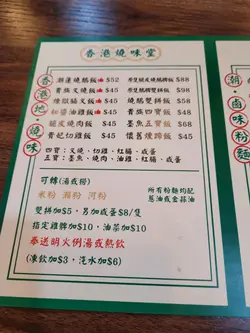 香港燒味堂
香港地·燒味
潮蓮燒鵝飯 $52
貴族叉燒飯 $45
辣脷腩叉飯 $45
秘醬油雞飯 $45
脆皮燒肉飯 $45
貴妃切雞飯 $45
原隻脆皮燒髀飯 $88
原隻燒鵝髀拼飯 $98
燒鵝雙拼飯 $58
燒味雙拼飯 $50
墨魚五寶飯 $68
懷舊燶蹄飯 $65
四寶：叉燒、切雞、紅腸、咸蛋
五寶：墨魚、燒肉、油雞、紅腸、咸蛋
可轉(湯或撈)
米粉 瀨粉 河粉
所有粉麵均配
葱油或蒜蓉油
雙拼加$5，另加咸蛋$8/隻
指定雞髀加$10，油菜加$10
奉送明火例湯或熱飲
(凍飲加$3，汽水加$6)
潮·鹵味粉麵